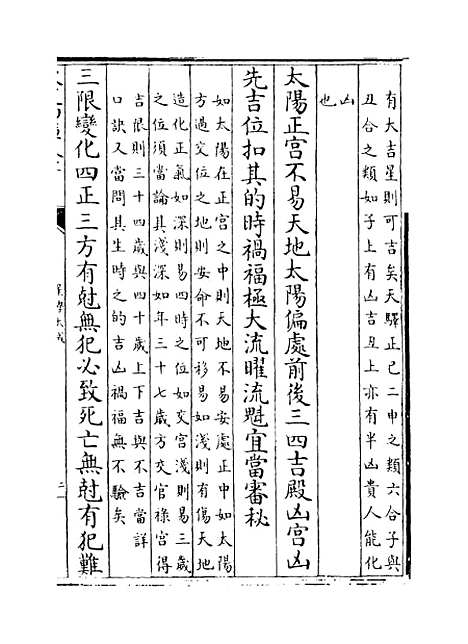 有大吉星則可吉矣天驛正己二申之類六合子與
丑合之類如子上有凶吉丑上亦有半凶貴人能化
凶
也
太陽正宫不易天地太陽偏處前後三四吉殿凶宫凶
先吉位扣其的時禍福極大流曜流魁宜當審秘
如太陽在正宫之中則天地不易安處正中如太陽
方過交位之地則安命不可移易如淺則有傷天地
造化正氣如深則易四時之位如交宫淺則易三歳
之位須當論其淺深如年三十七歳方交官祿宫得
吉限則三十四歳與四十歳上下吉與不吉當詳
口訣又當問其生時之的吉凶禍福無不驗矣
三限變化四正三方有尅無犯必致死亡無尅有犯難
星學大成